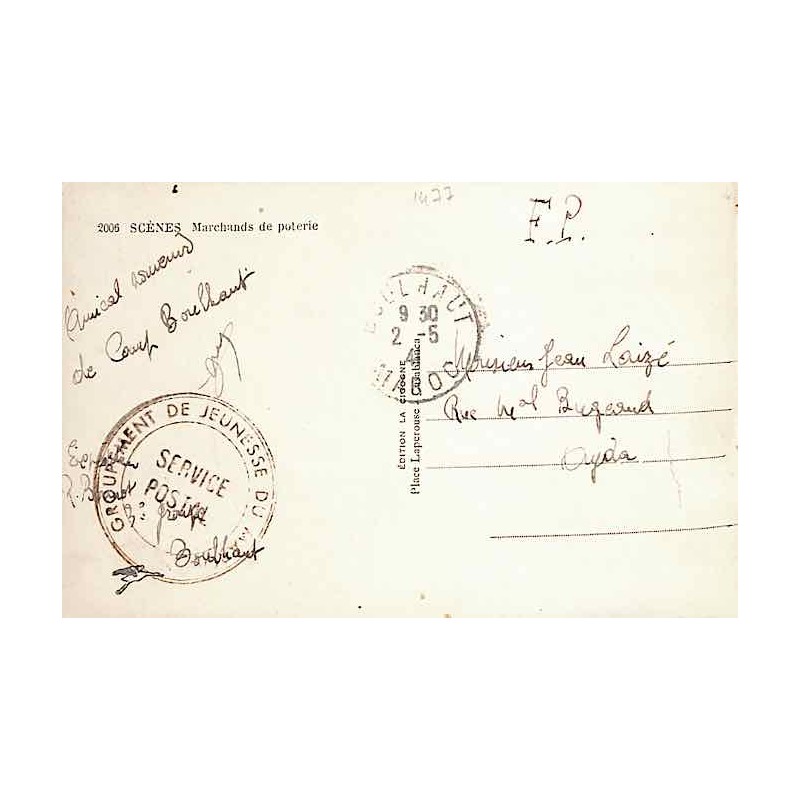 1477
F.P.
2006 SCÈNES Marchands de poterie
Amical souvenir
de Camp Boulhaut
BOULHAUT
9 30
2 -5
MAROC
ÉDITION LA CIGOGNE
Place Laperouse - Casablanca
Monsieur Jean Laizé
Rue Mal Bugeaud
Oujda
GROUPEMENT DE JEUNESSE DU
SERVICE
POSTAL
3e groupe
Boulhaut